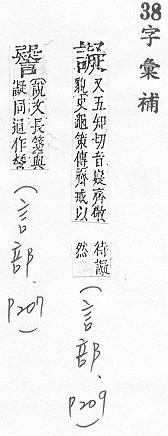 38字彙補
譺
又五知切音疑齊敬
貌史龜策傳齊戒以
待譺
然
(言部、P209)
說文長箋與
譺同通作譥
(言部、P207)